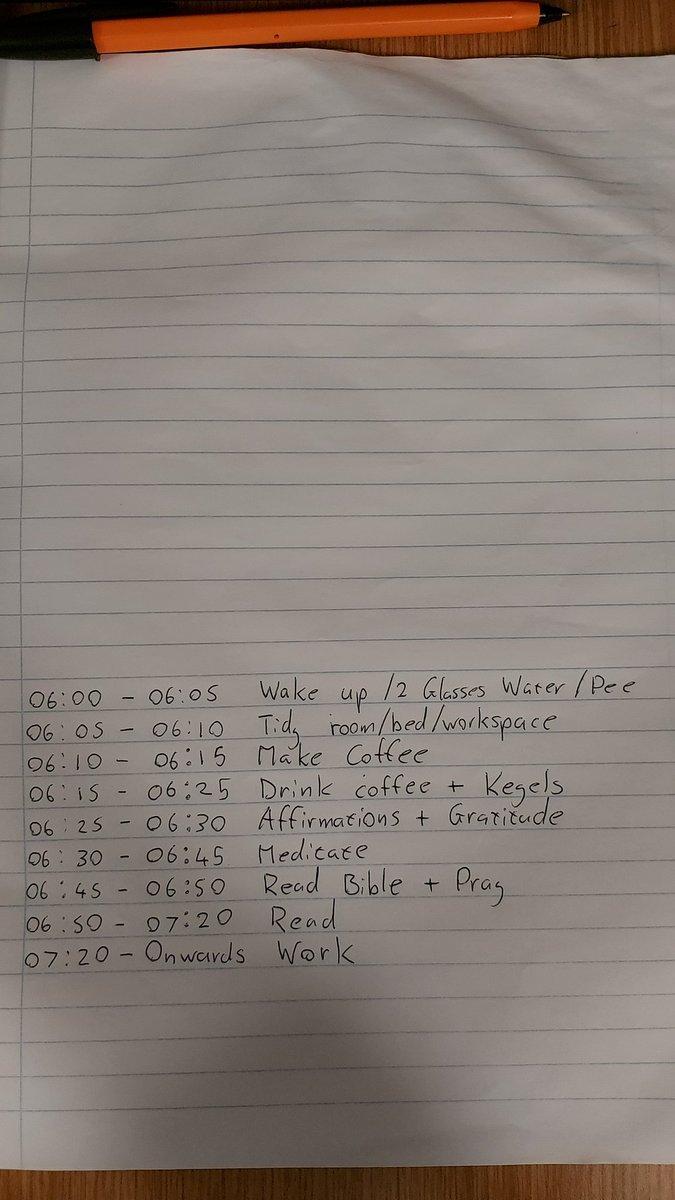 06:00 - 06:05 Wake up /2 Glasses Water/Pee
06:05 - 06:10 Tidy room/bed/workspace
06:10 - 06:15 Make Coffee
06:15 - 06:25 Drink coffee + Kegels
06:25 - 06:30 Affirmations + Gratitude
06:30 - 06:45 Meditate
06:45 - 06:50 Read Bible + Pray
06:50 - 07:20 Read
07:20 - Onwards Work